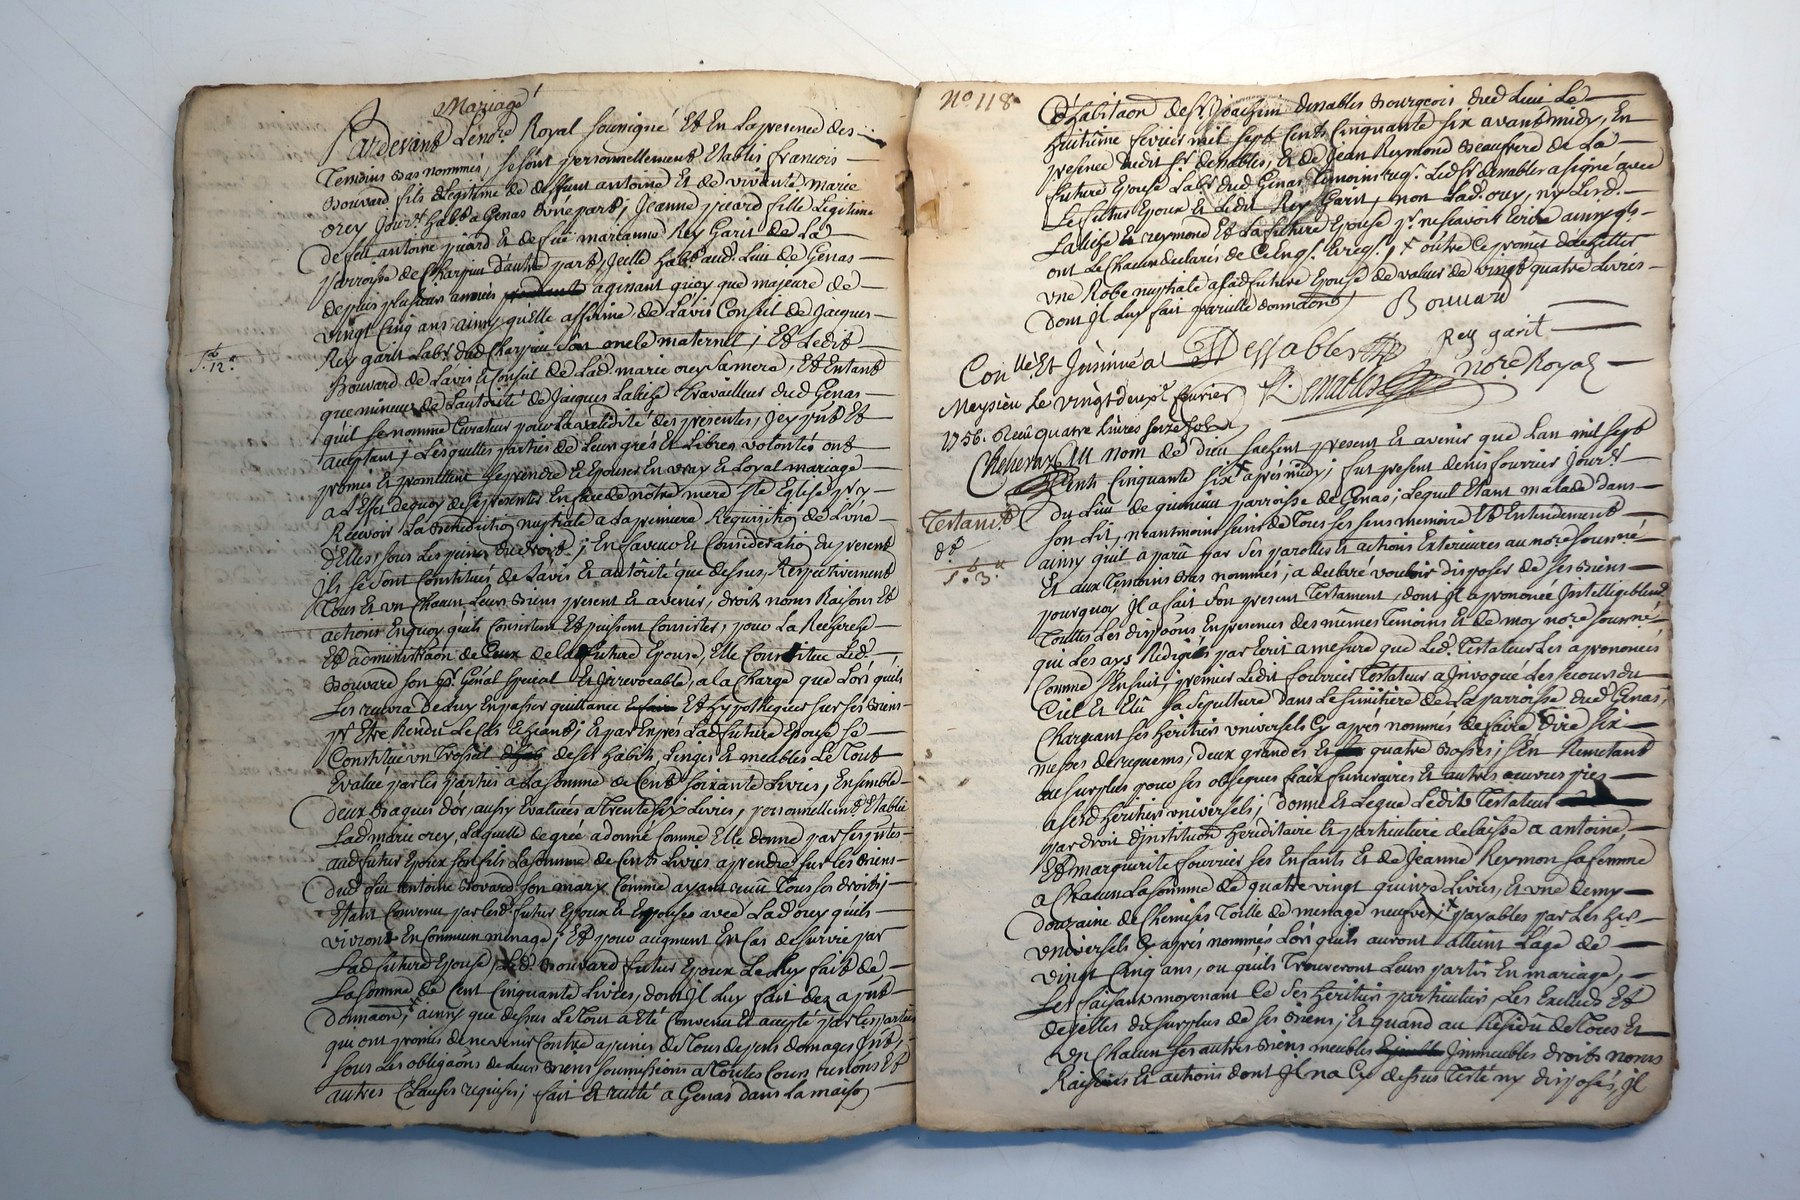 Mariage
Pardevant Le no.re Royal soussigné Et En la presence des
Temoins bas nommés, se sont personnellement Etablis francois
Bouvard fils Legitime de deffunt antoine Et de vivante marie
orey Jour.r hab.t a Genas d'une part; Jeanne puard fille Legitime
de feu antoine puard Et de fuë marianne Rey Garit de La
parroisse de Charpieu d'autre part, Jcelle hab.t aud. Lieu de Genas
depuis plusieurs années agissant quoy que majeure de
vingt Cinq ans, ainsy qu'elle affirme de L'avis Conseil de Jacques
Rey garit Lab.r dud Charpieu son oncle maternel; Et Ledit
Bouvard de L'avis Et Conseil de Lad. marie orey sa mere, Et Entant
que mineur de L'autorité de Jacques Labise Travailleur dud Genas
qu'il se nomme Curateur pour La validité des presentes, Jcy p.nt Et
acceptant; Lesquelles parties de Leurs grés Et Libres volontés ont
promis Et promettent se prendre Et Epouser En vray Et Loyal mariage
a L'Effet de quoy de se presenter En face de nôtre mere s.te Eglise p.r y
Recevoir La benediction nuptiale a La premiere Requisition de L'une
d'Elles, sous Les peines du droit; En faveur Et Consideration du present
Jls se sont Constitués de L'avis Et autorité que dessus, Respectivement
Tous Et un Chacun Leurs biens present Et avenir, droits noms Raisons Et
actions En quoy qu'ils Consistent Et puissent Consister, pour La Recherche
Et administraon de Ceux de lad future Epouse, Elle Constitue Led.
Bouvard son p.r Gén̄al special Et Jrrevocable, a la Charge que Lors qu'il
Les recevra d'en passer quittance Et hypothequer sur ses biens
p.r Etre Rendu Le Cas Echeant; Et par Exprés Lad future Epouse se
Constitue un Trossel de ses habits, Linges Et meubles Le Tout
Evalué par les parties a La somme de Cent soixante Livres, Ensemble
deux Bagues d'or, aussy Evaluées a Trente six Livres, personnellem.t Etablie
Lad marie orey, Laquelle de gré a donné Comme Elle donne par Les p.ntes
aud futur Epoux son fils La somme de Cents Livres a prendre sur les biens
dud feu antoine Bovard son mary Comme ayant reçû Tous ses droits;
Etant Convenu par lesd futur Epoux Et Epouses avec Lad orey qu'ils
vivront En Commun menage; Et pour augment En Cas de survie par
Lad future Epouse, Led. Bouvard futur Epoux Le Luy fait de
La somme de Cent Cinquante Livres, dont Jl Luy fait dez a p.nt
donnaon; ainsy que dessus Le Tout a Eté Convenu Et accepté par les parties
qui ont promis de ne venir Contre a peine de Tous depens domages Jnt.
sous Les obligaons de Leurs biens soumissions a Toutes Cours renons Et
autres Clauses requises; fait Et recité a Genas dans La maison
s.d 12.s
N.o 118
d'habitaon de s.r Joachim denables Bourgeois dud Lieu Le
huitième fevrier mil sept Cents Cinquante six avant midy, En
presence dudit s.r denables, Et de Jean Reymond Beaufrere de La
future Epouse Lab.r dud. Genas Temoins req.s Led s.r denables a signé avec
Le futur Epoux Et Ledit Rey Garit, non Lad. ouy, ny Lesd.
Labise Et reymond Et La future Epouse p.r ne scavoir Ecrire ainsy qu'ils
ont Le Chacun declarés de Ce Enq.s Et req.s, + outre Ce promis d'achetter
une Robe nuptiale a Lad future Epouse de valeur de vingt quatre Livres
dont Jl Luy fait pareille donnaon
Bouvard
Rey garit
Con.llé Et Jnsinué a
Meysieu Le vingt deux.e fevrier
1756. Reçu quatre Livres seize sols
no.re Royal
Au nom de dieu sachent present Et avenir que L'an mil sept
Cents Cinquante six + aprés midy; fut present denis fourrier Jour.r
du Lieu de quinieu parroisse de Genas; Lequel Etant malade dans
son Lit, neantmoins sain de Tous ses sens memoire Et Entendement
ainsy qu'il a parû par ses parolles Et actions Exterieures au no.re soussné
Et aux Temoins bas nommés; a declaré vouloir disposer de ses biens
pourquoy Jl a fait son present Testament, dont Jl a prononcé Jntelligiblem.t
Touttes Les disp̄ons En presence des mêmes Temoins Et de moy no.re soussné
qui Les ays Redigés par Ecrit a mesure que Led. Testateur Les a prononcés
Comme s'Ensuit, premier Ledit fourrier Testateur a Jnvoqué Le secours du
Ciel Et Elû sa sepulture dans Le simitiere de La parroisse dud Genas;
Chargeant ses heritiers universels Cy aprés nommés de faire dire six
messes de requiems, deux grandes Et quatre Basses; s'En Remettant
au surplus pour ses obseques fraix funeraires Et autres œuvres pies
a sesd. heritiers universels; donne Et Legue Ledit Testateur
par droit d'jnstituon héréditaire Et particuliere delaisse a antoine
Et marguerite fourrier ses Enfants Et de Jeanne Reymon sa femme
a Chacun La somme de quatre vingt quinze Livres, Et une demy
douzaine de Chemises Toille de menage neufves; + payables par Les her.
universels Cy aprés nommés Lors qu'ils auront atteint L'âge de
vingt Cinq ans, ou qu'ils Trouveront Leur partis En mariage,
Les faisant moyenant Ce ses heritiers particuliers Les Exclud Et
dejette du surplus de ses biens; Et quand au Residû de Tous Et
un Chacun ses autres biens meubles Jmmeubles droits noms
Raisons Et actions dont Jl n'a Cy dessus Testé ny disposés, Jl
Testam.t
d.t
s.d 3.s